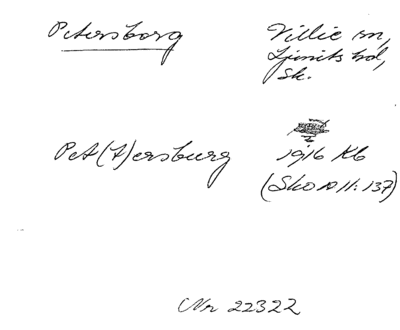 Petersborg
Villie sn,
Ljunits hd,
Sk.
Pet(t)ersburg
1916 Kb
(SkO 10 11: 137)
Nr 22322